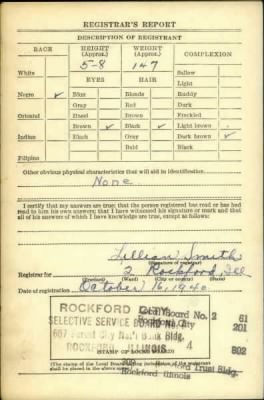 REGISTRAR'S REPORT
DESCRIPTION OF REGISTRANT
RACE HEIGHT (Approx.) WEIGHT (Approx.) COMPLEXION
5-8 147
White Sallow
EYES HAIR Light
Negro ✓ Blue Blonde Ruddy
Gray Red Dark
Oriental Hazel Brown Freckled
Brown ✓ Black ✓ Light brown
Indian Black Gray Dark brown ✓
Bald Black
Filipino
Other obvious physical characteristics that will aid in identification
None
I certify that my answers are true; that the person registered has read or has had read to him his own answers; that I have witnessed his signature or mark and that all of his answers of which I have knowledge are true, except as follows:
Lillian Smith
(Signature of registrar)
Registrar for 2 Rockford, Ill
(Precinct) (Ward) (City or county) (State)
Date of registration October 16, 1940
ROCKFORD Local Board No. 2 61
SELECTIVE SERVICE BOARD No. 2 Rockford City 201
607 Forest City Nat'l Bank Bldg. 4 802
ROCKFORD, ILLINOIS
(STAMP OF LOCAL BOARD)
Trust Bldg.
(The stamp of the Local Board having jurisdiction of the registrant shall be placed in the above space.)
Rockford Illinois